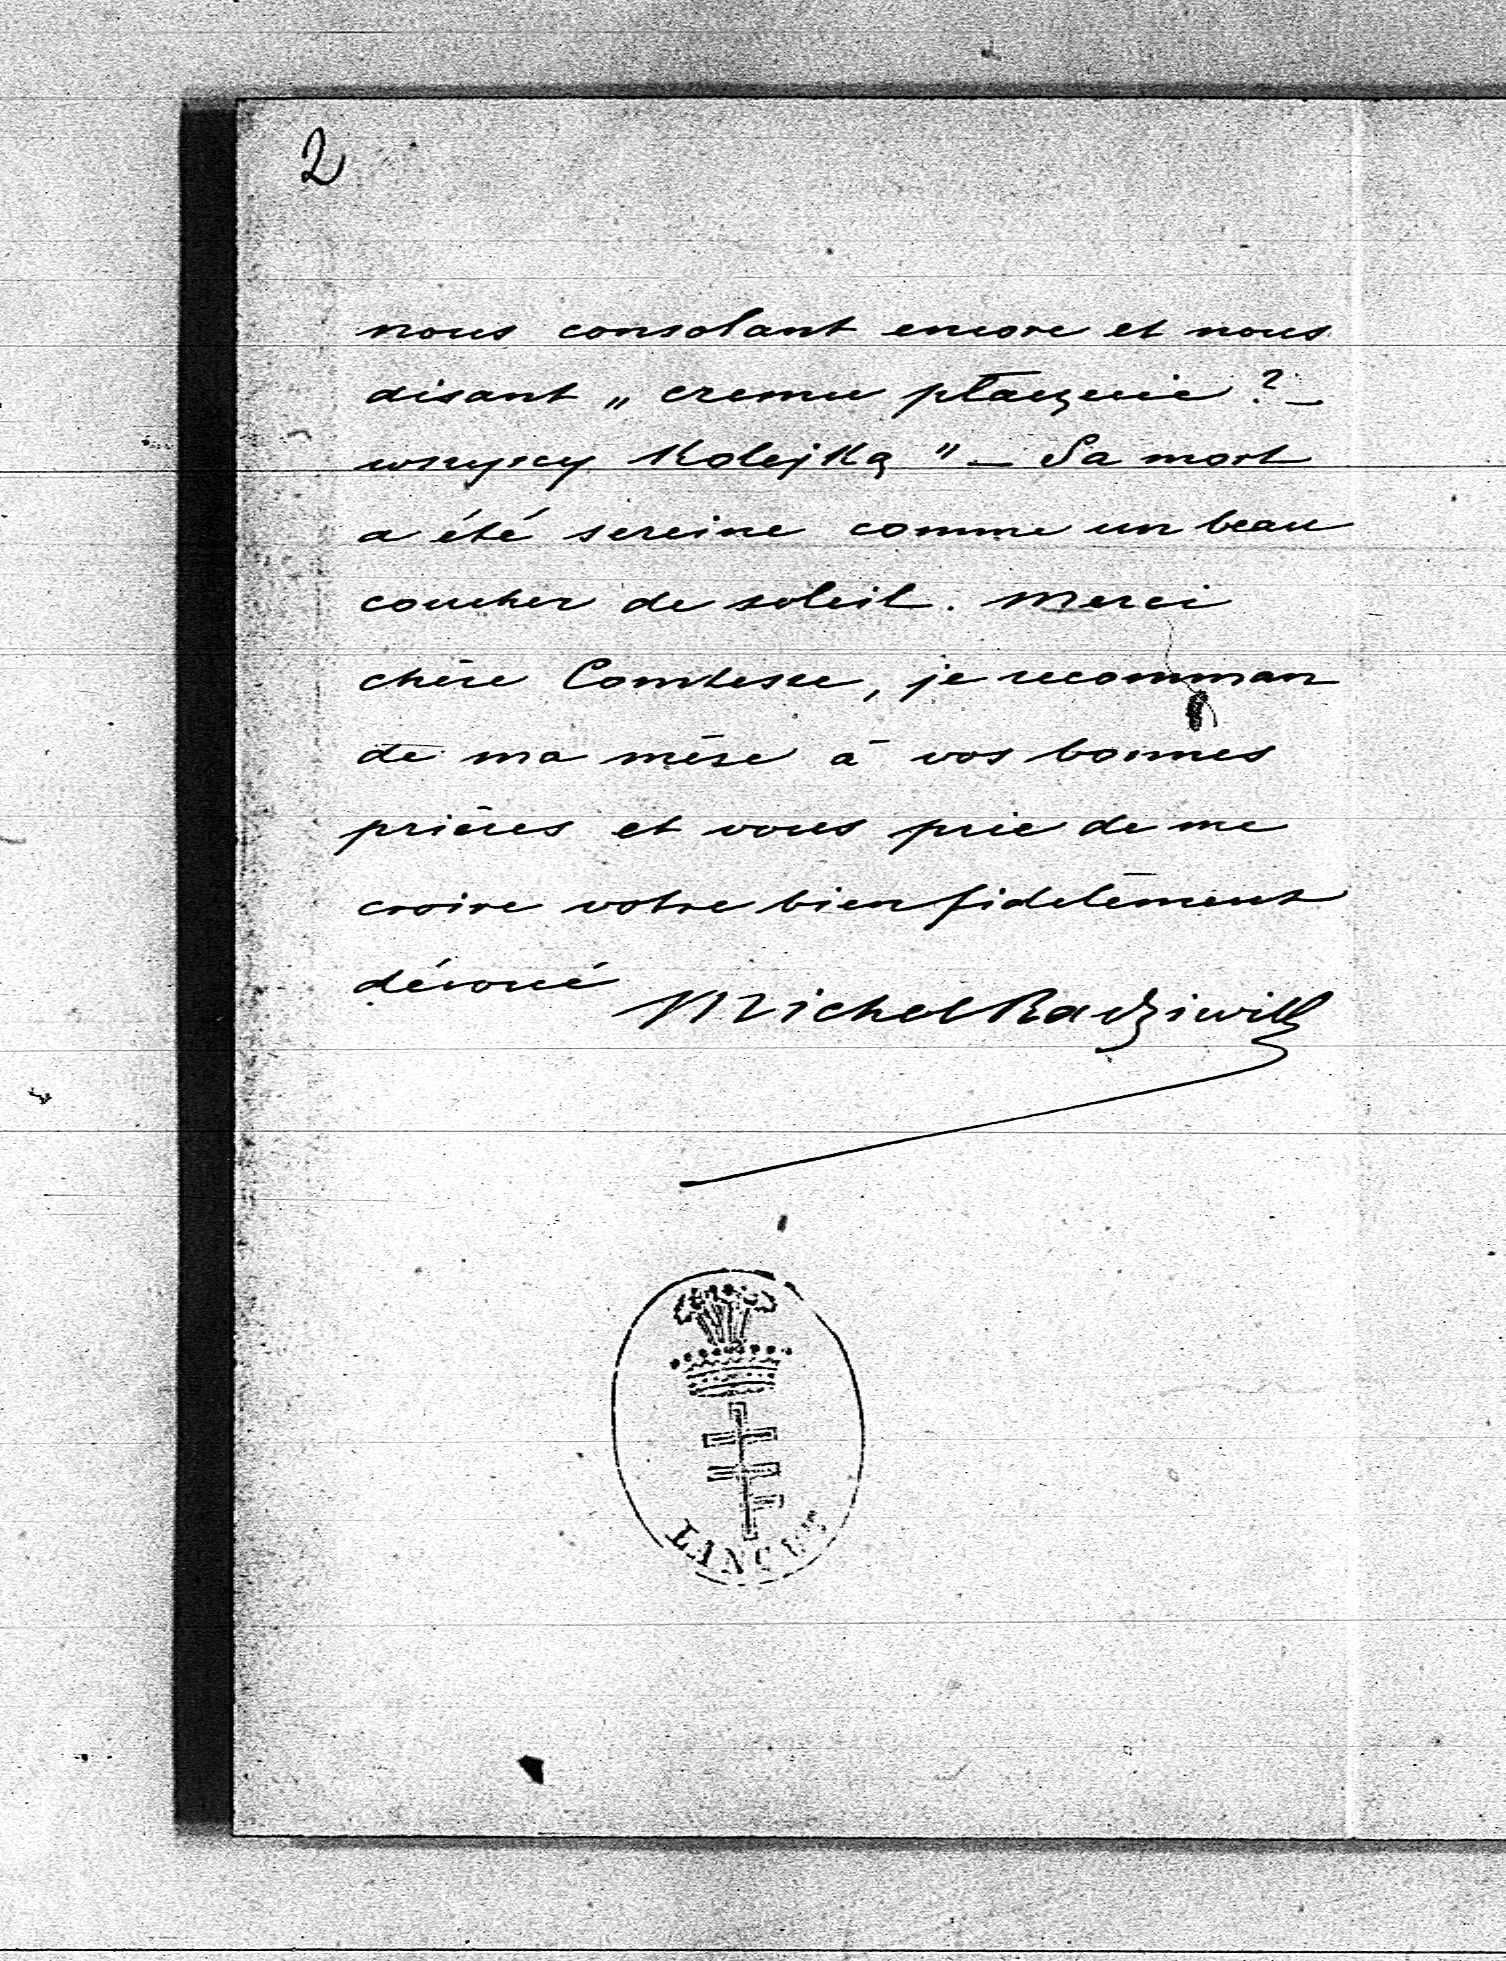 2
nous consolant encore et nous
disant „ czemu płaczecie ? –
wszyscy Kolejką " – Sa mort
a été sereine comme un beau
coucher de soleil. Merci
chère Comtesse, je recomman
de ma mère à vos bonnes
prières et vous prie de me
croire votre bien fidèlement
dévoué
Michel Radziwill
LANCUT